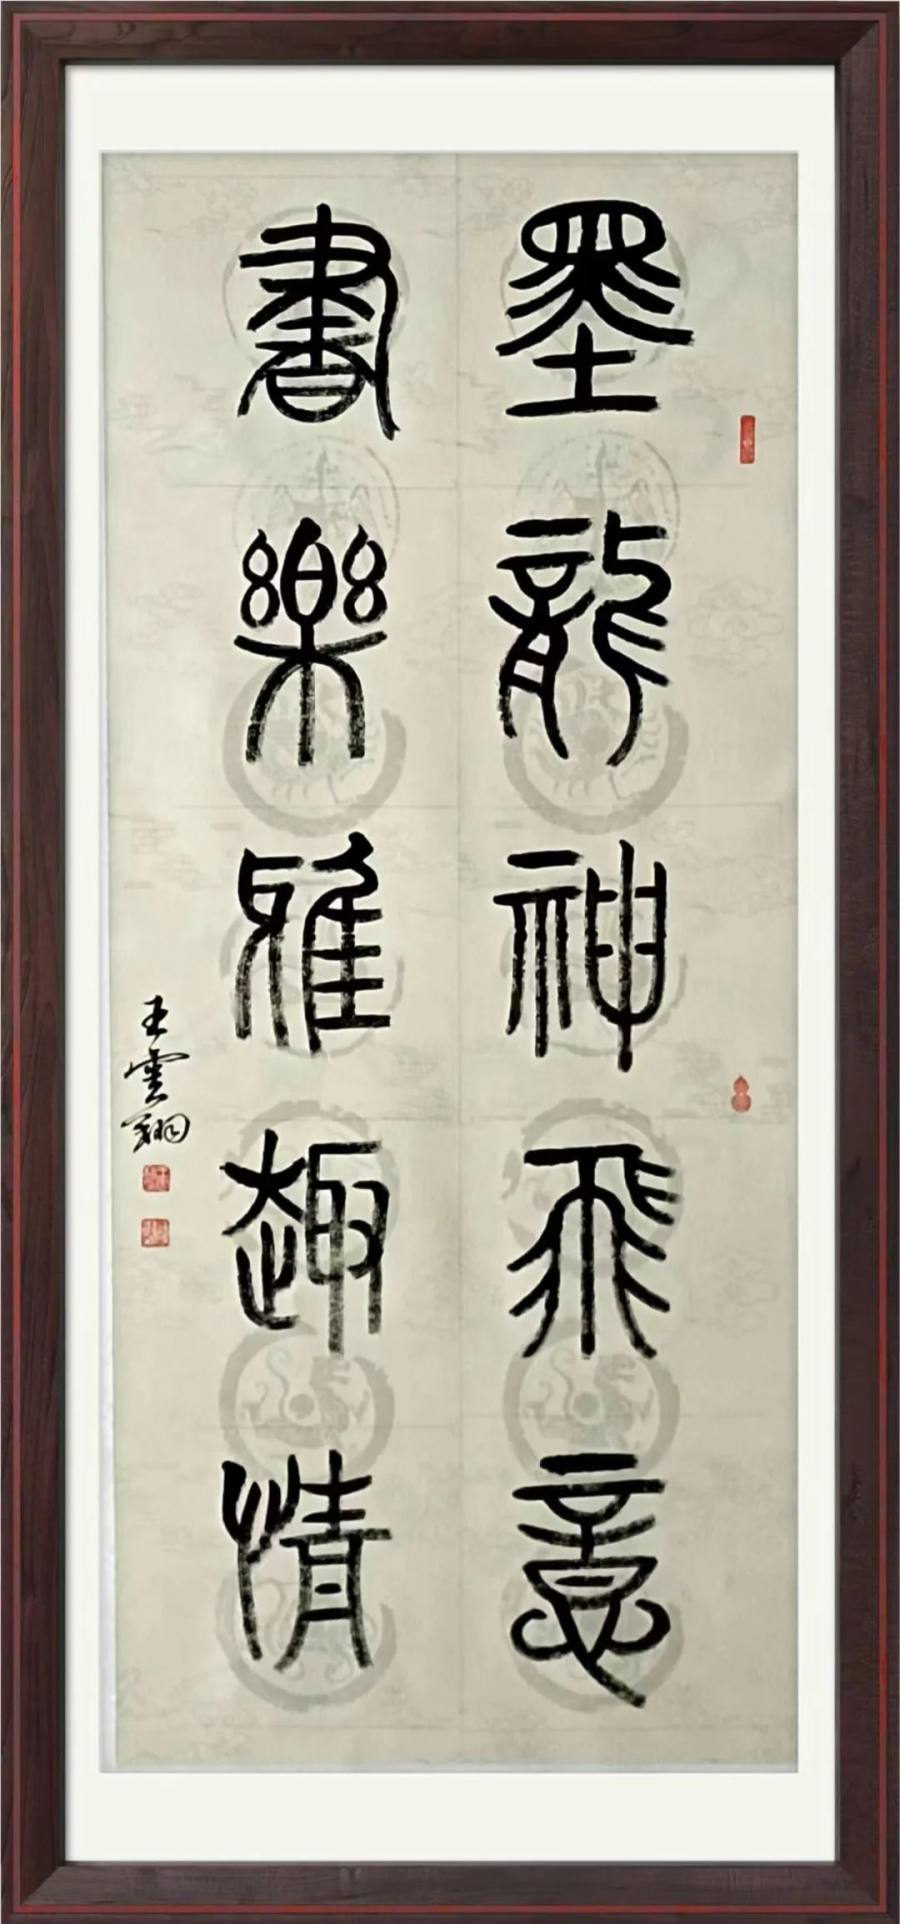 墨龍神飛意
書樂雅趣情
王雲翔